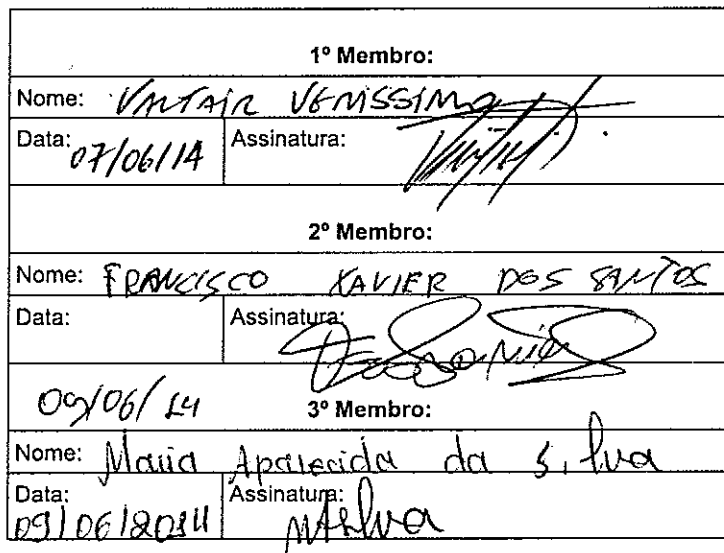 1º Membro:
Nome: VALTAIR VENISSIMO
Data: 07/06/14 Assinatura:
2º Membro:
Nome: FRANCISCO XAVIER DOS SANTOS
Data: Assinatura:
09/06/14 3º Membro:
Nome: Maria Aparecida da Silva
Data: 09/06/2014 Assinatura: MASilva